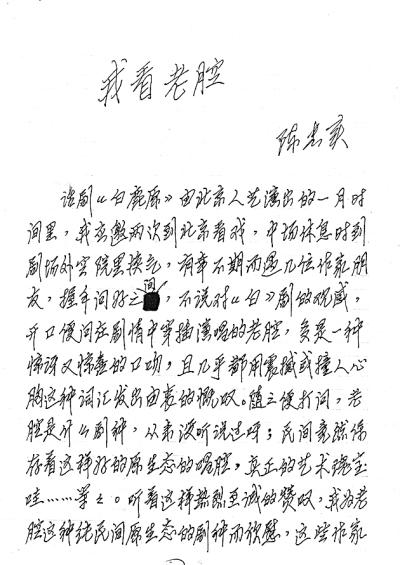 我看老腔
陈忠实
话剧《白鹿原》由北京人艺演出的一月时
间里，我应邀两次到北京看戏，中场休息时到
剧场外空院里换气，有幸不期而遇几位作家朋
友，握手问好之间，不说对《白》剧的观感，
开口便问在剧情中穿插演唱的老腔，多是一种
惊讶又惊喜的口吻，且几乎都用震撼或撞人心
胸这种词汇发出由衷的慨叹。随之便打问，老
腔是什么剧种，从来没听说过呀；民间竟然保
存着这样好的原生态的唱腔，真正的艺术瑰宝
哇……等等。听着这样热烈至诚的赞叹，我为老
腔这种纯民间原生态的剧种而欣慰，这些作家